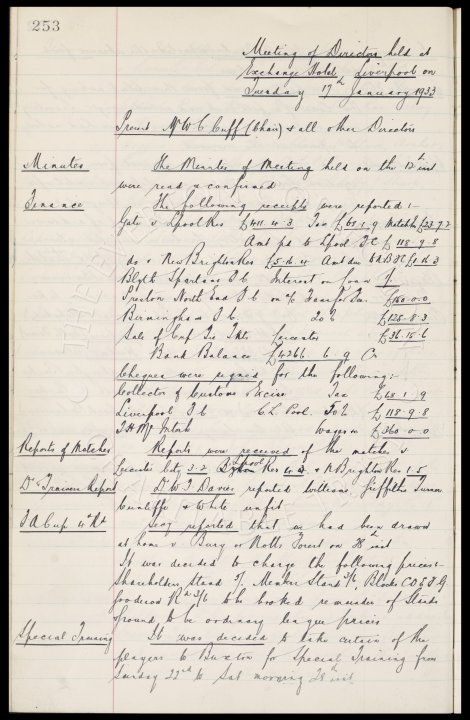 253
Meeting of Directors held at
Exchange Hotel, Liverpool on
Tuesday 17th January 1933
Present Mr W C Cuff (Chair) & all other Directors
Minutes
The Minutes of Meeting held on the 12th inst
were read & confirmed
Finance
The following receipts were reported :-
Gate v Lpool Res £411.4.3 Tax £68.1.9 Match £23.7.2
Amt pd to Lpool F.C. £118.9.8
do v New Brighton Res £5.16.4 Amt due N.B.F.C £1.16.3
Blyth Spartans F.C. Interest on Loan £1
Preston North End F C on a/c Transfer £150.0.0
Birmingham F.C. Do £125.8.3
Sale of Cup Tie Tkts Leicester £36.15.6
Bank Balance £4266.6.9 Cr
Cheques were signed for the following :-
Collector of Customs & Excise Tax £68.1.9
Liverpool F.C. C.L. Pool. Do £118.9.8
wages &c £360.0.0
Reports of Matches
Reports were received of the matches v
Leicester City 3-2 Lpool Res & N Brighton Res 1-5
Dr & Trainers Report
Dr W.J. Davies reported Williams, Griffiths Turner
Cunliffe & White unfit
F A Cup 4th Rd
Secy reported that we had been drawn
at home v Bury or Notts Forest on 28th inst
It was decided to charge the following prices :-
Shareholders Stand 5/- Member Stand 3/6, Blocks C D E F G
Goodison Rd 3/6 to be booked remainder of Stands
Ground to be ordinary league prices
Special Training
It was decided to take certain of the
players to Buxton for Special Training from
Sunday 22nd to Sat morning 28th inst.